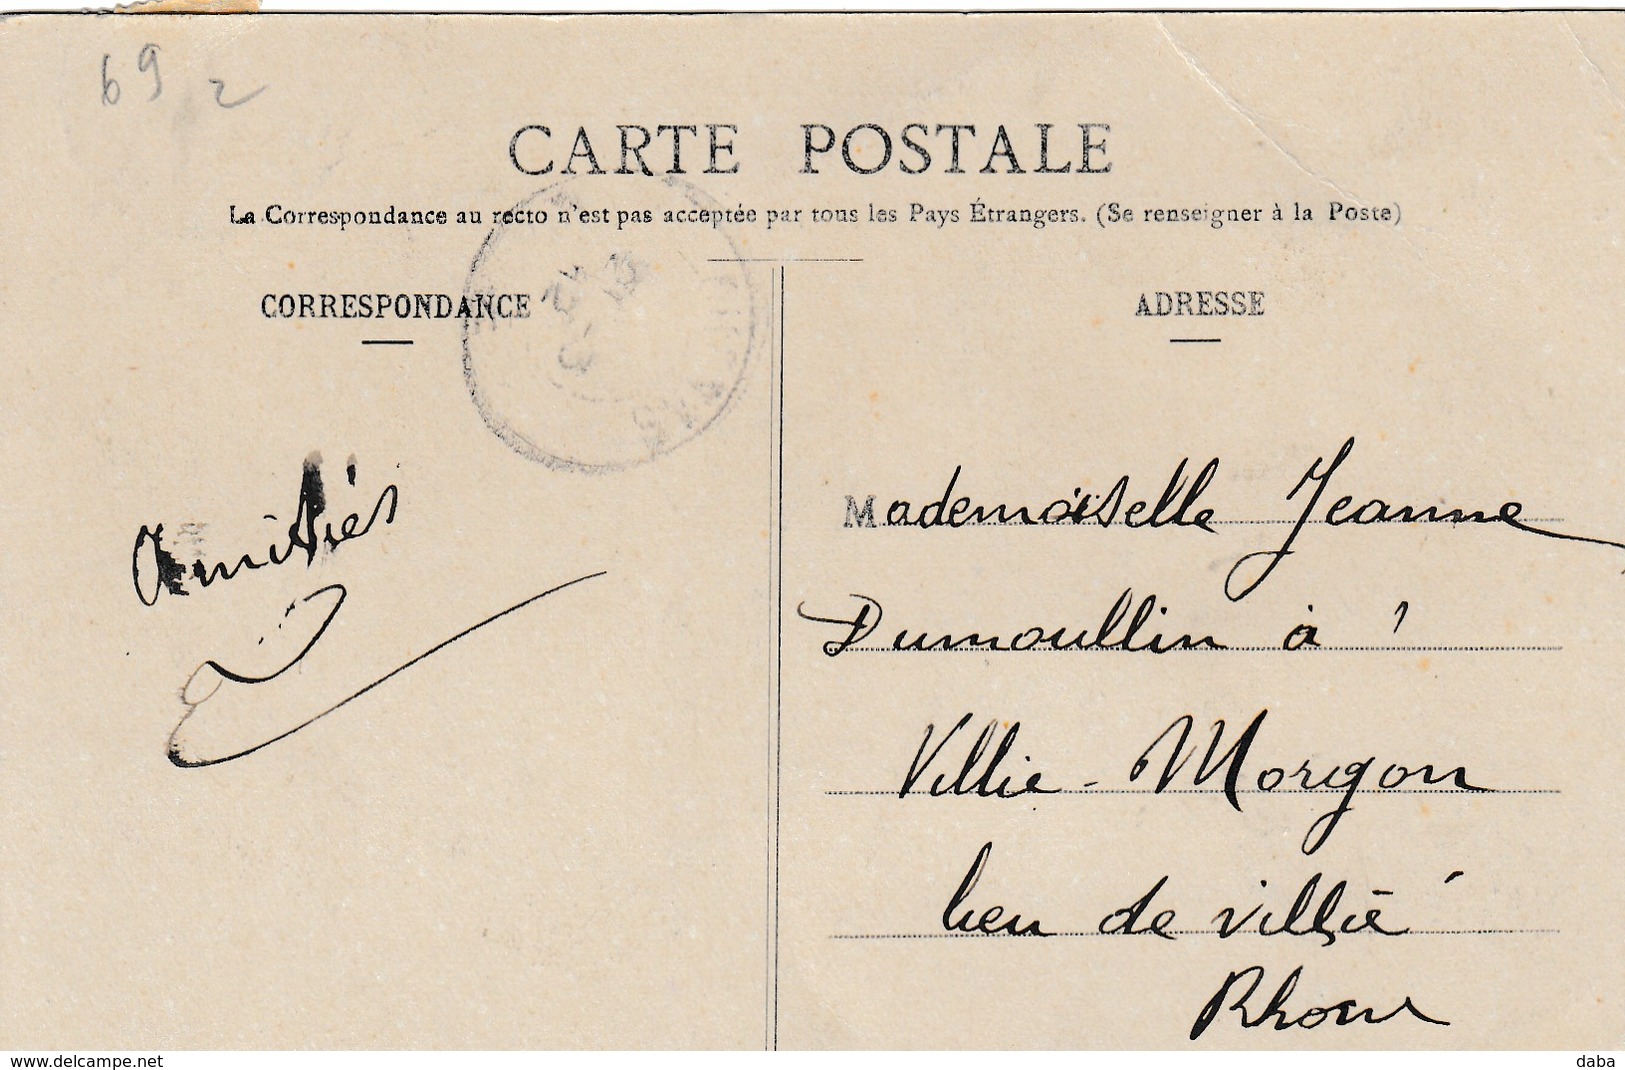 69 2
CARTE POSTALE
La Correspondance au recto n'est pas acceptée par tous les Pays Étrangers. (Se renseigner à la Poste)
CORRESPONDANCE
Amitiés
ADRESSE
Mademoiselle Jeanne
Dumoullin à
Villié-Morgon
lieu de villié
Rhône
www.delcampe.net
daba